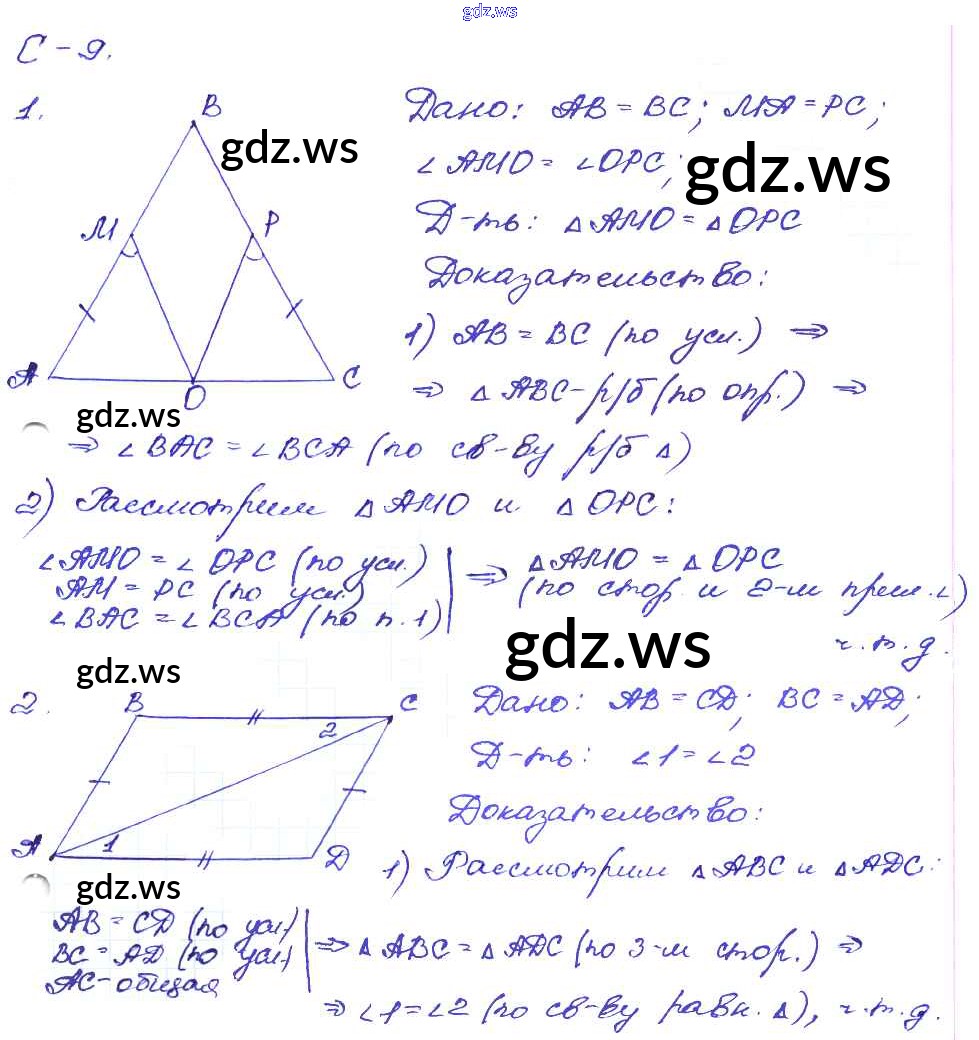 gdz.ws
С-9.
1.
B
Дано: AB = BC; MA = PC;
gdz.ws
∠AMO = ∠OPC;
gdz.ws
M
P
Д-ть: △AMO = △OPC
Доказательство:
1) AB = BC (по усл.) ⇒
A
O
C
⇒ △ABC - р/б (по опр.) ⇒
gdz.ws
⇒ ∠BAC = ∠BCA (по св-ву р/б △)
2) Рассмотрим △AMO и △OPC:
∠AMO = ∠OPC (по усл.)
AM = PC (по усл.)
∠BAC = ∠BCA (по п.1)
⇒ △AMO = △OPC
(по стор. и 2-м прил. ∠)
ч.т.д.
gdz.ws
gdz.ws
2.
B
C
2
A
1
D
Дано: AB = CD; BC = AD;
Д-ть: ∠1 = ∠2
Доказательство:
1) Рассмотрим △ABC и △ADC:
gdz.ws
AB = CD (по усл)
BC = AD (по усл)
AC - общая
⇒ △ABC = △ADC (по 3-м стор.) ⇒
⇒ ∠1 = ∠2 (по св-ву равн. △), ч.т.д.